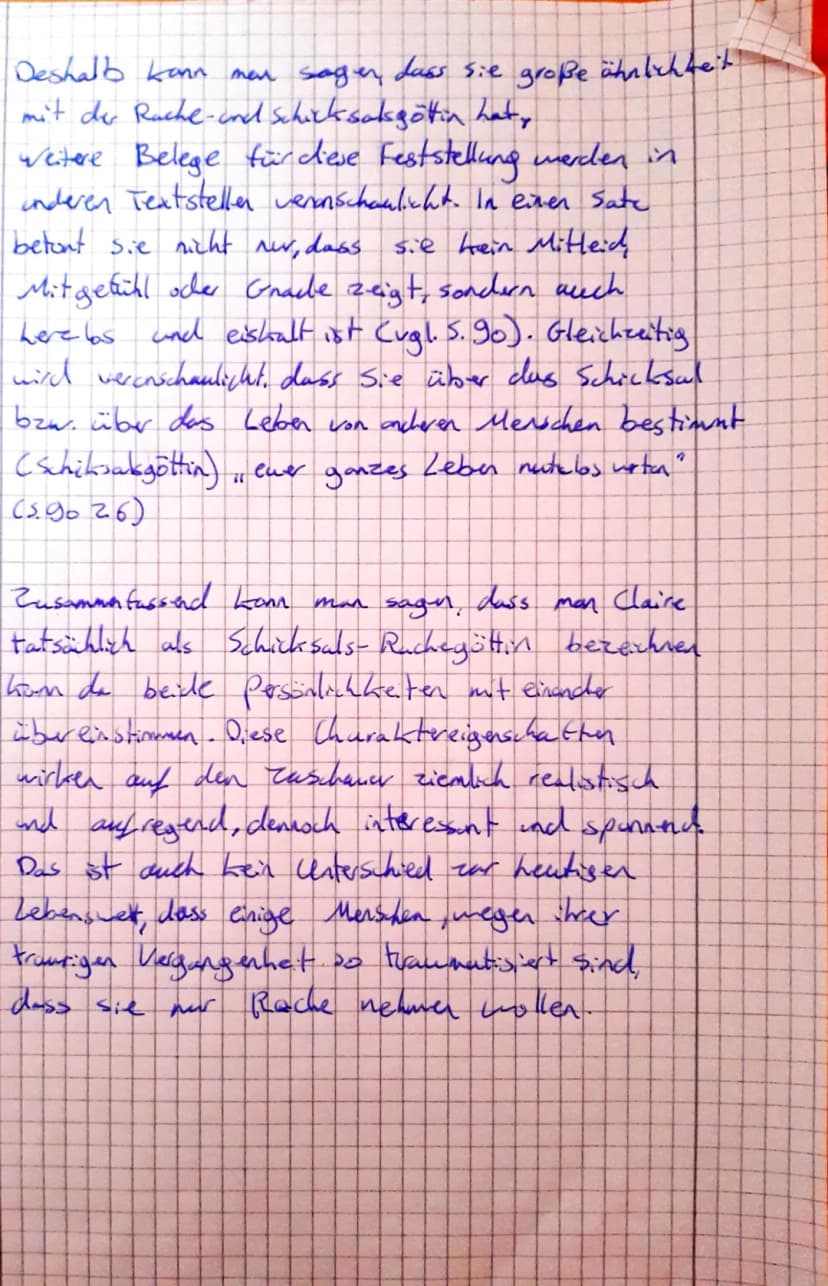 Deshalb kann man sagen, dass sie große ähnlichkeit
mit der Rache-und Schicksalsgöttin hat,
weitere Belege für diese Feststellung werden in
anderen Textstellen veranschaulicht. In einen Satz
betont sie nicht nur, dass sie kein Mitleid,
Mitgefühl oder Gnade zeigt, sondern auch
herzlos und eiskalt ist (vgl. S. 90). Gleichzeitig
wird veranschaulicht, dass sie über das Schicksal
bzw. über das Leben von anderen Menschen bestimmt
(Schiksalsgöttin) „euer ganzes Leben nutzlos "
(S. 90 Z 6)
Zusammenfassend kann man sagen, dass man Claire
tatsächlich als Schicksals- Rachegöttin bezeichnen
kann da beide Persönlichkeiten mit einander
übereinstimmen. Diese Charaktereigenschaften
wirken auf den Zuschauer ziemlich realistisch
und aufregend, dennoch interessant und spannend.
Das ist auch kein Unterschied zur heutigen
Lebenswelt, dass einige Menschen, wegen ihrer
traurigen Vergangenheit so traumatisiert sind,
dass sie nur Rache nehmen wollen.